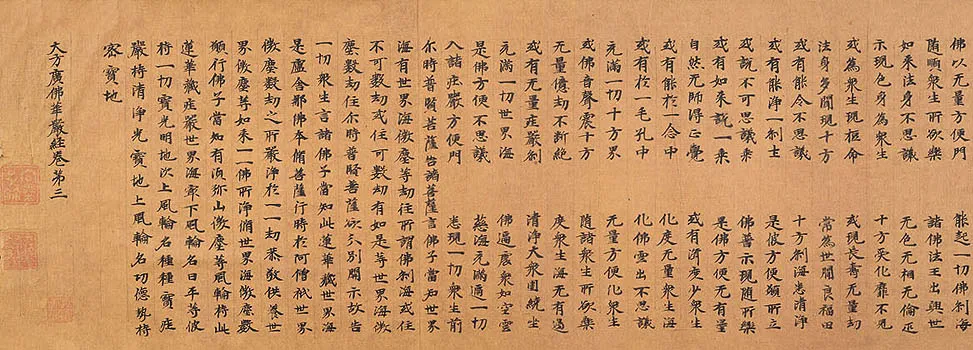 佛以无量方便門　能起一切佛剎海
隨順衆生所欲樂　諸佛法王出興世
如来法身不思議　无色无相无倫疋
示現色身為衆生　十方受化靡不見
或為衆生現短命　或現長壽无量劫
法身多門現十方　常為世間良福田
或有能令不思議　十方剎海悉清淨
或有能淨一剎土　是彼方便願所立
或說不可思議乘　佛普示現随所樂
或有如来說一乘　是佛方便无有量
自然无師得正覺　或有濟度少衆生
或有能於一念中　化度无量衆生海
或有於一毛孔中　化佛雲出不思議
充滿一切十方界　无量方便化衆生
或佛音聲震十方　随諸衆生所欲樂
无量億劫不斷絕　度衆生海无有邊
或有无量莊嚴剎　清淨大衆圍繞坐
充滿一切世界海　佛遍處衆如空雲
是佛方便不思議　慈海充滿遍一切
入諸莊嚴方便門　悉現一切衆生前
尒時普賢菩薩告諸菩薩言佛子當知世界
海有世界海微塵等劫住所謂佛剎海或住
不可數劫或住可數劫有如是等世界海微
塵數劫住尒時普賢菩薩欲分別開示故告
一切衆生言諸佛子當知此蓮華藏世界海
是盧舍那佛本脩菩薩行時於阿僧祇世界
微塵數劫之所嚴淨於一一劫恭敬供養世
界微塵等如来一一佛所淨脩世界海微塵數
願行佛子當知有湏弥山微塵等風輪持此
蓮華藏莊嚴世界海冣下風輪名曰平等彼
持一切寶光明地次上風輪名種種寶莊
嚴持清淨光寶地上風輪名功德勢持
密寶地
大方廣佛華嚴経卷第三